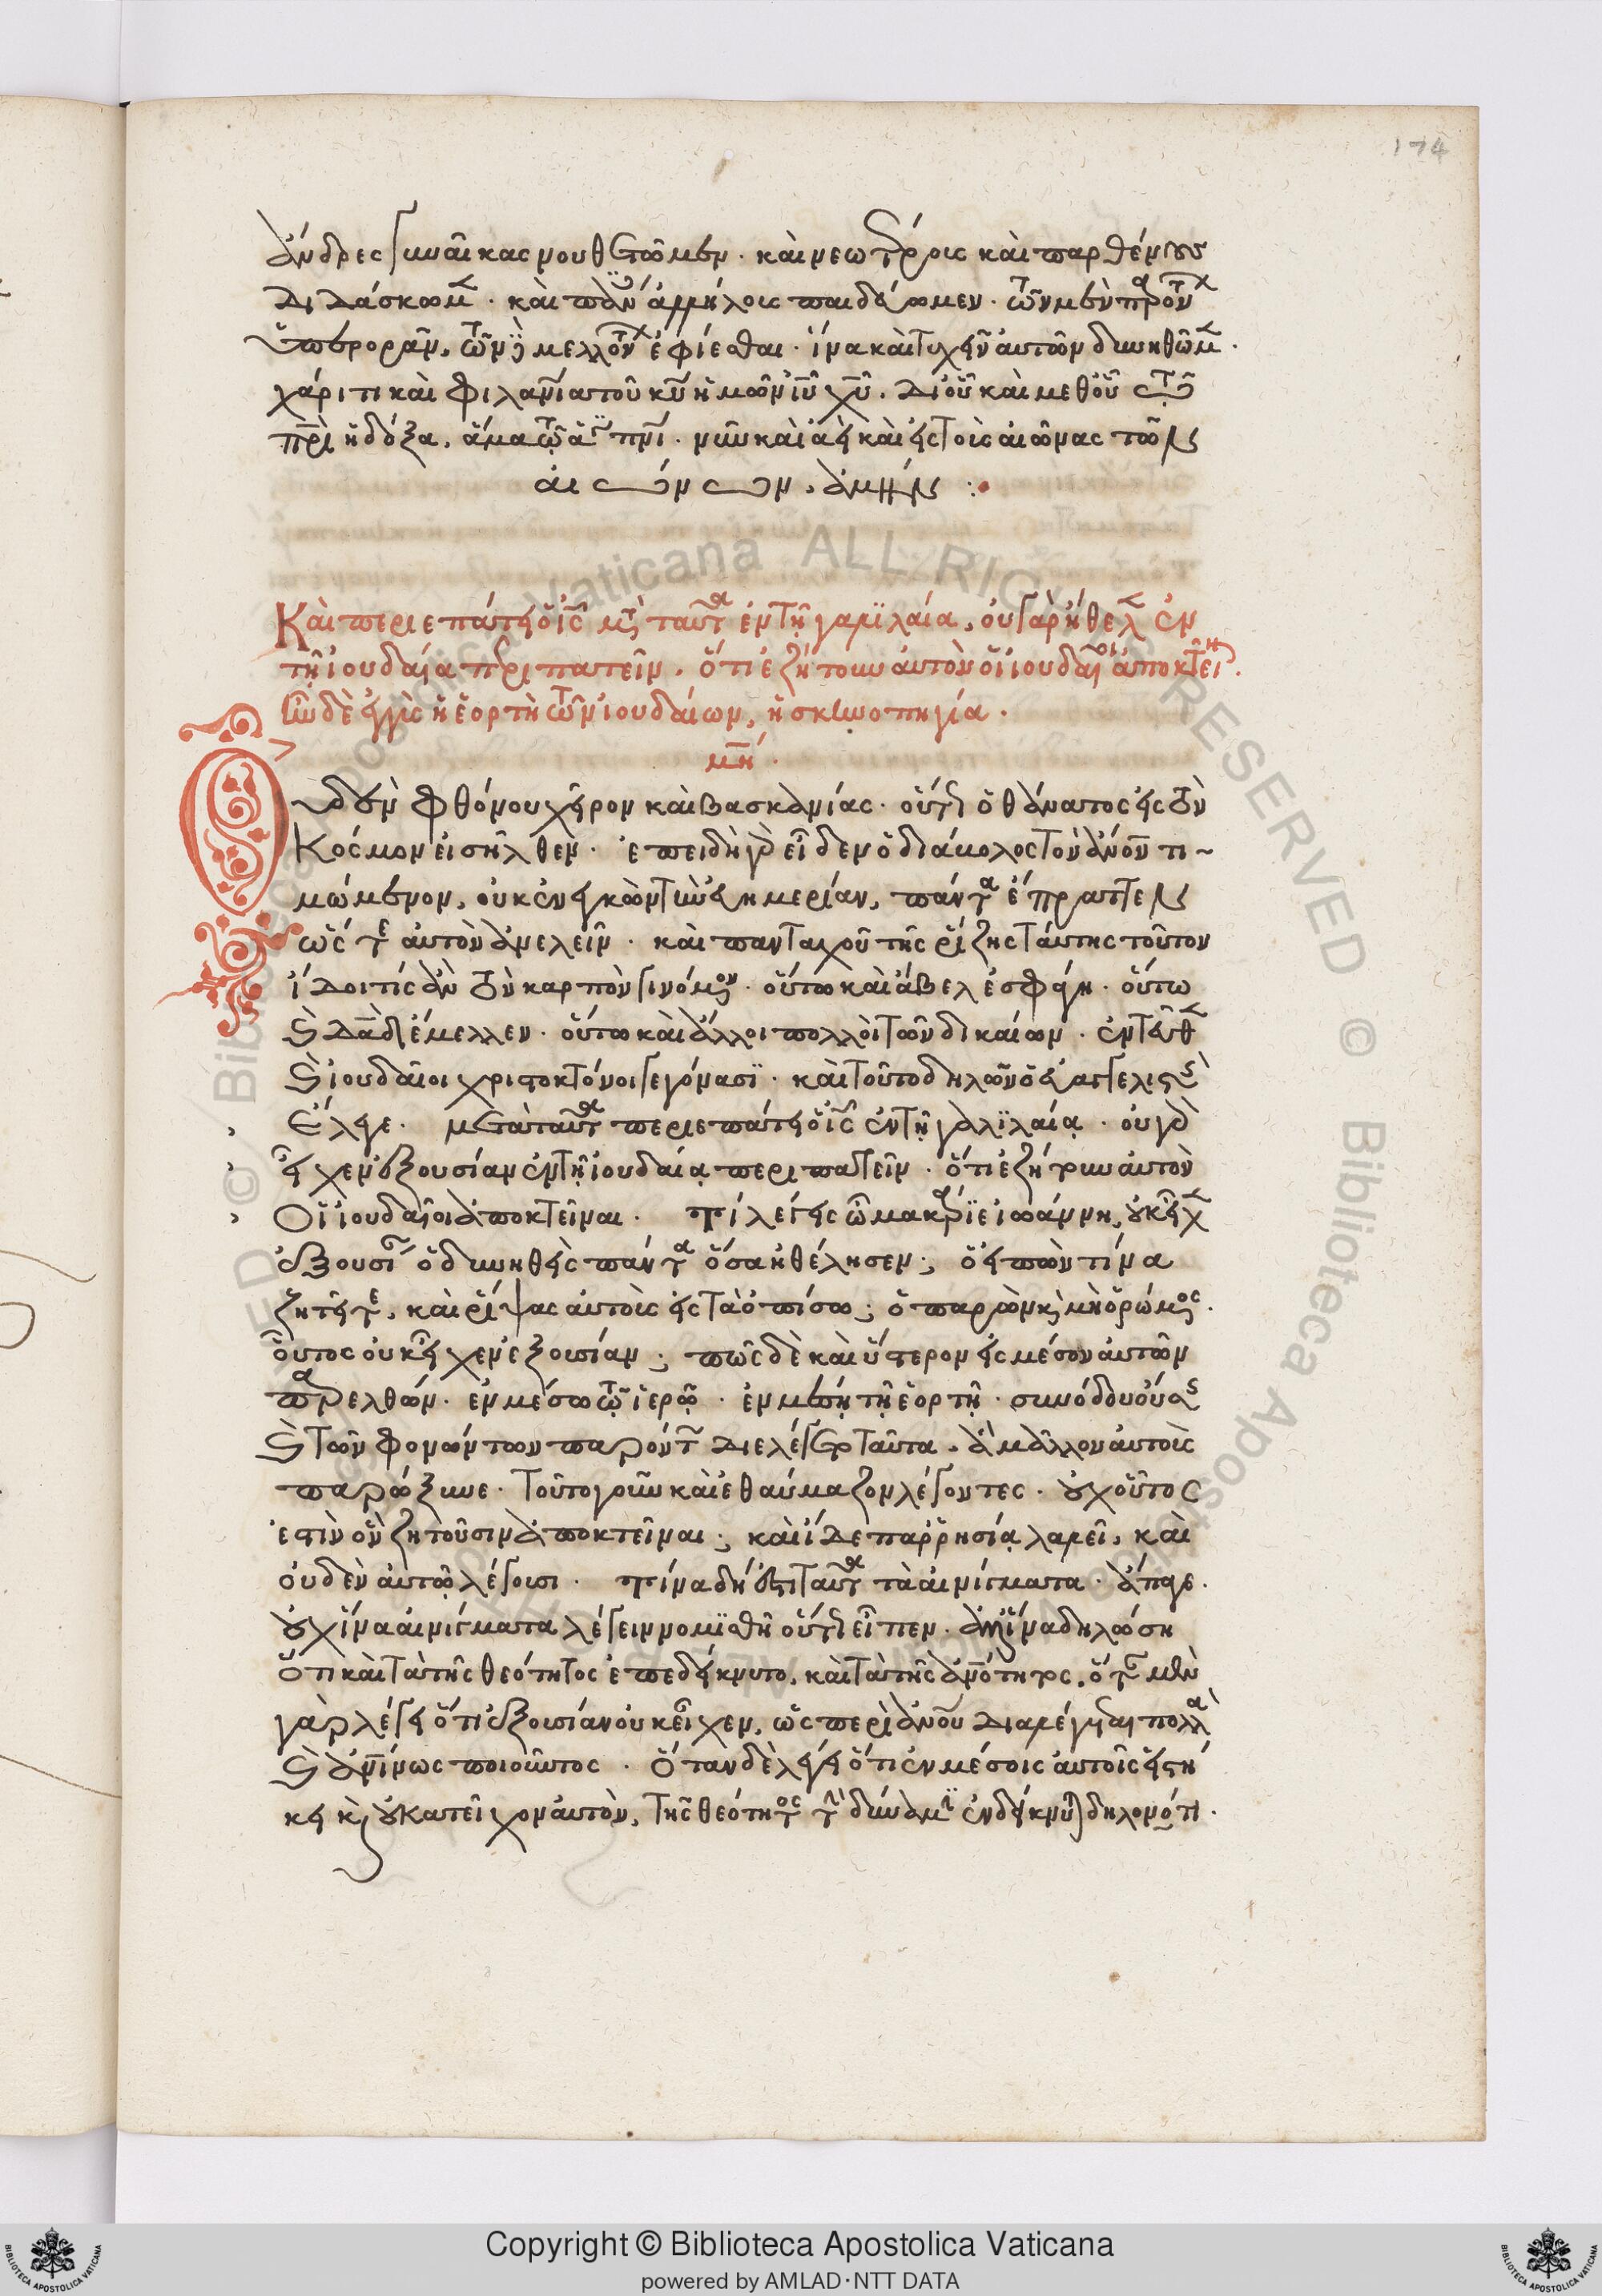 174
ἄνδρες γυναῖκας νουθετῶμεν. καὶ νεωτέρους καὶ παρθένους
διδάσκωμεν. καὶ πάντας ἀλλήλους παιδεύωμεν. τῶν μὲν παρόντων
ὑπερορᾶν, τῶν δὲ μελλόντων ἐφίεσθαι. ἵνα καὶ τυχεῖν αὐτῶν δυνηθῶμεν.
χάριτι καὶ φιλανίᾳ τοῦ κυ ἡμῶν ιυ χυ. δι' οὗ καὶ μεθ' οὗ τῷ
πρὶ ἡ δόξα, ἅμα τῷ ἁγίῳ πνι. νῦν καὶ ἀεὶ καὶ εἰς τοὺς αἰῶνας τῶν
αἰώνων, ἀμήν :
Καὶ περιεπάτει ὁ ις μετὰ ταῦτα ἐν τῇ γαλιλαία, οὐ γὰρ ἤθελεν ἐν
τῇ ἰουδαία περιπατεῖν. ὅτι ἐζήτουν αὐτὸν οἱ ἰουδαῖοι ἀποκτεῖναι.
ἦν δὲ ἐγγὺς ἡ ἑορτὴ τῶν ἰουδαίων, ἡ σκηνοπηγία.
μη.
Οὐδὲν φθόνου χεῖρον καὶ βασκανίας. οὕτως ὁ θάνατος εἰς τὸν
κόσμον εἰσῆλθεν. ἐπειδὴ γὰρ εἶδεν ὁ διάβολος τὸν ἄνον τι-
μώμενον, οὐκ ἐνεγκὼν τὴν εὐημερίαν, πάντα ἔπραττεν
ὥστε αὐτὸν ἀνελεῖν. καὶ πανταχοῦ τῆς ῥίζης ταύτης τοῦτον
ἴδοι τίς ἂν τὸν καρπὸν γινόμενον. οὕτω καὶ ἄβελ ἐσφάγη. οὕτω
καὶ δαδ ἔμελλεν. οὕτω καὶ ἄλλοι πολλοὶ τῶν δικαίων. ἐντεῦθεν
καὶ ἰουδαῖοι χριστοκτόνοι γεγόνασι. καὶ τοῦτο δηλῶν ὁ εὐαγγελιστὴς
ἔλεγε. μετὰ ταῦτα περιεπάτει ὁ ις ἐν τῇ γαλιλαίᾳ. οὐ γὰρ
εἶχεν ἐξουσίαν ἐν τῇ ἰουδαίᾳ περιπατεῖν. ὅτι ἐζήτουν αὐτὸν
οἱ ἰουδαῖοι ἀποκτεῖναι. τί λέγεις ὦ μακάριε ἰωάννη, οὐκ εἶχεν
ἐξουσίαν ὁ δυνηθεὶς πάντα ὅσα ἠθέλησεν; ὁ εἰπὼν τίνα
ζητεῖτε, καὶ ῥίψας αὐτοὺς εἰς τὰ ὀπίσω; ὁ παρὼν καὶ μὴ ὁρώμενος.
οὗτος οὐκ εἶχεν ἐξουσίαν; πῶς δὲ καὶ ὕστερον εἰς μέσον αὐτῶν
παρελθών. ἐν μέσω τῷ ἱερῷ. ἐν μέσῃ τῇ ἑορτῇ. συνόδου οὔσης
καὶ τῶν φονώντων παρόντων διελέγετο ταῦτα. ἃ μᾶλλον αὐτοὺς
παρώξυνε. τοῦτο γοῦν καὶ ἐθαύμαζον λέγοντες. οὐχ οὗτος
ἐστὶν ὃν ζητοῦσιν ἀποκτεῖναι; καὶ ἴδε παῤῥησίᾳ λαλεῖ, καὶ
οὐδὲν αὐτῷ λέγουσι. τίνα δή ἐστι ταῦτα τὰ αἰνίγματα. ἄπαγε.
οὐχ ἵνα αἰνίγματα λέγειν νομισθῇ οὕτως εἶπεν. ἀλλ' ἵνα δηλώση
ὅτι καὶ τὰ τῆς θεότητος ἐπεδείκνυτο, καὶ τὰ τῆς ἀνότητος. ὅταν μὲν
γὰρ λέγῃ ὅτι ἐξουσίαν οὐκ εἶχεν, ὡς περὶ ἀνου διαλέγεται πολλὰ
καὶ ἀνίνως ποιοῦντος. ὅταν δὲ λέγῃ ὅτι ἐν μέσοις αὐτοῖς εἱστή
κει καὶ οὐ κατεῖχον αὐτὸν, τῆς θεότητος τὴν δύναμιν ἐνδείκνυται δηλονότι.
Copyright © Biblioteca Apostolica Vaticana
powered by AMLAD·NTT DATA